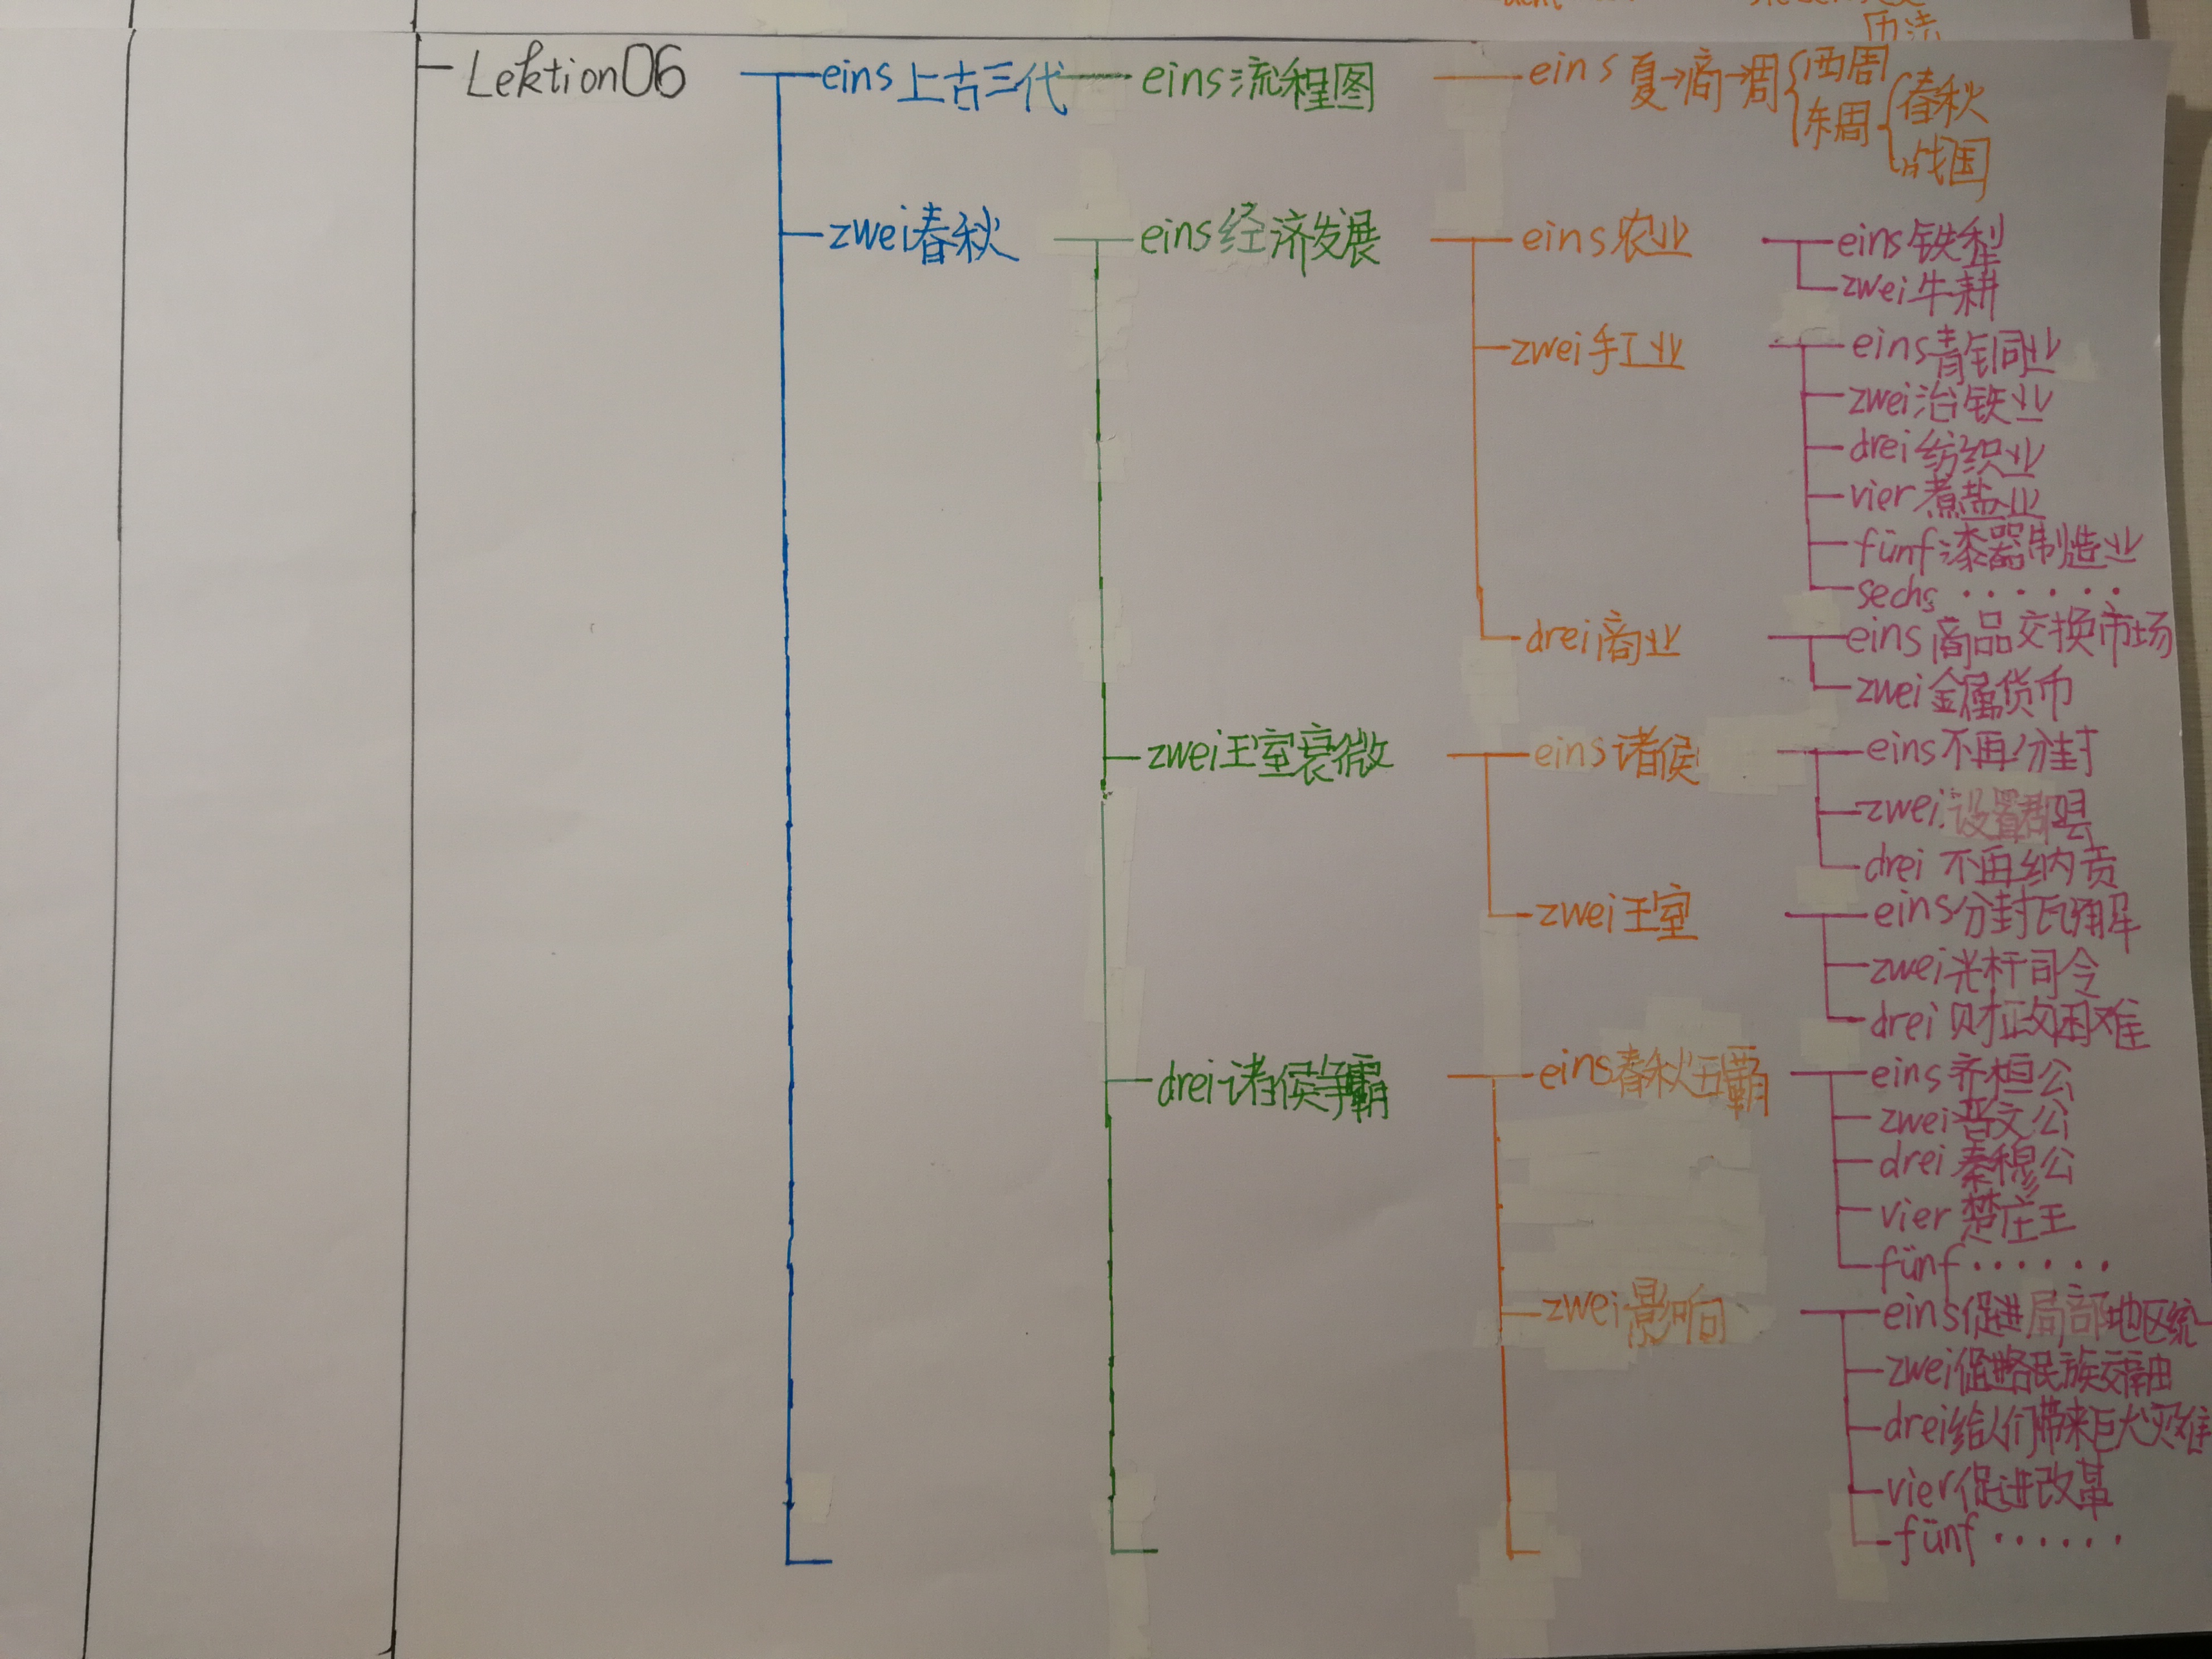 历法
Lektion06
eins上古三代
eins流程图
eins夏→商→周
西周
东周
春秋
战国
zwei春秋
eins经济发展
eins农业
eins铁犁
zwei牛耕
zwei手工业
eins青铜业
zwei冶铁业
drei纺织业
vier煮盐业
fünf漆器制造业
sechs ······
drei商业
eins商品交换市场
zwei金属货币
zwei王室衰微
eins诸侯
eins不再分封
zwei设置郡县
drei不再纳贡
zwei王室
eins分封瓦解
zwei光杆司令
drei财政困难
drei诸侯争霸
eins春秋五霸
eins齐桓公
zwei晋文公
drei秦穆公
vier楚庄王
fünf ······
zwei影响
eins促进局部地区统一
zwei促进各民族交融
drei给人们带来巨大灾难
vier促进改革
fünf ······